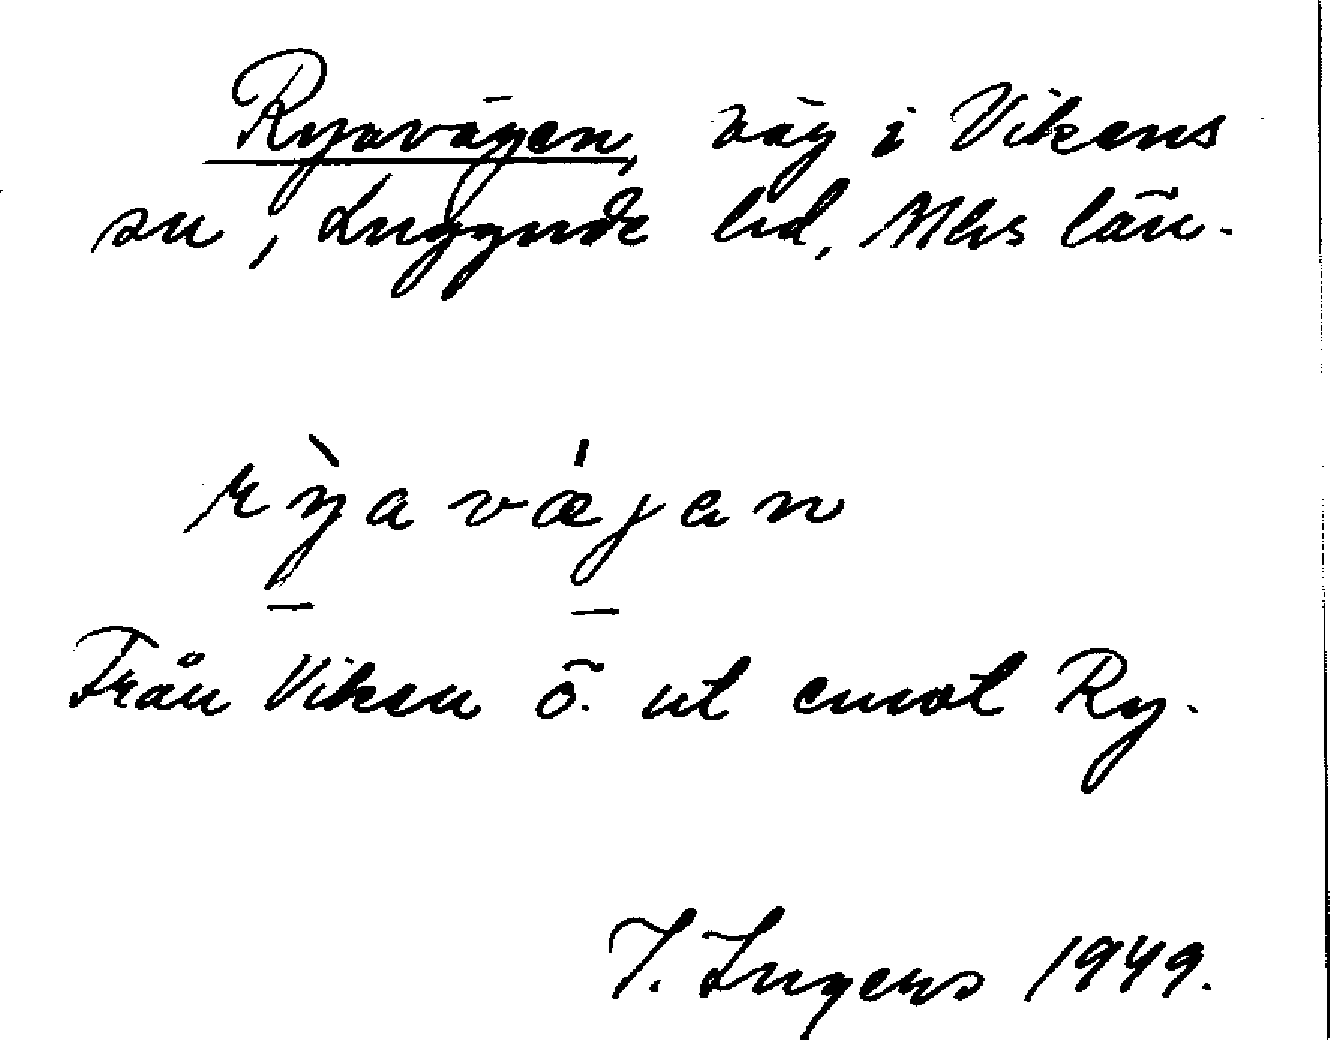 Ryavägen, väg i Vikens
sn, Luggude hd, Mlhs län.
rỳavǽjan
Från Viken ö. ut emot Ry.
I. Ingers 1949.